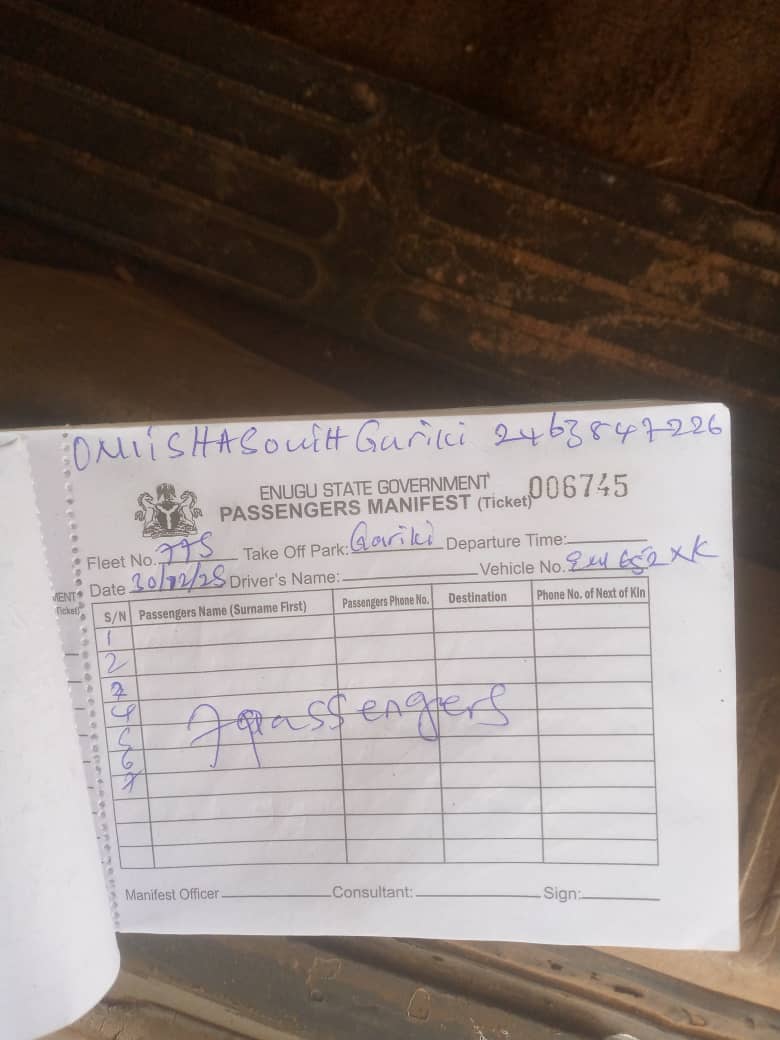 ONIISHA South Gariki 2463847226
ENUGU STATE GOVERNMENT
PASSENGERS MANIFEST (Ticket) 006745
Fleet No. 775 Take Off Park: Gariki Departure Time:
Date 30/12/25 Driver's Name: Vehicle No. 652 XK
MENT
Ticket)
S/N Passengers Name (Surname First) Passengers Phone No. Destination Phone No. of Next of Kin
1
2
3
4
7passengers
5
6
7
Manifest Officer Consultant: Sign: